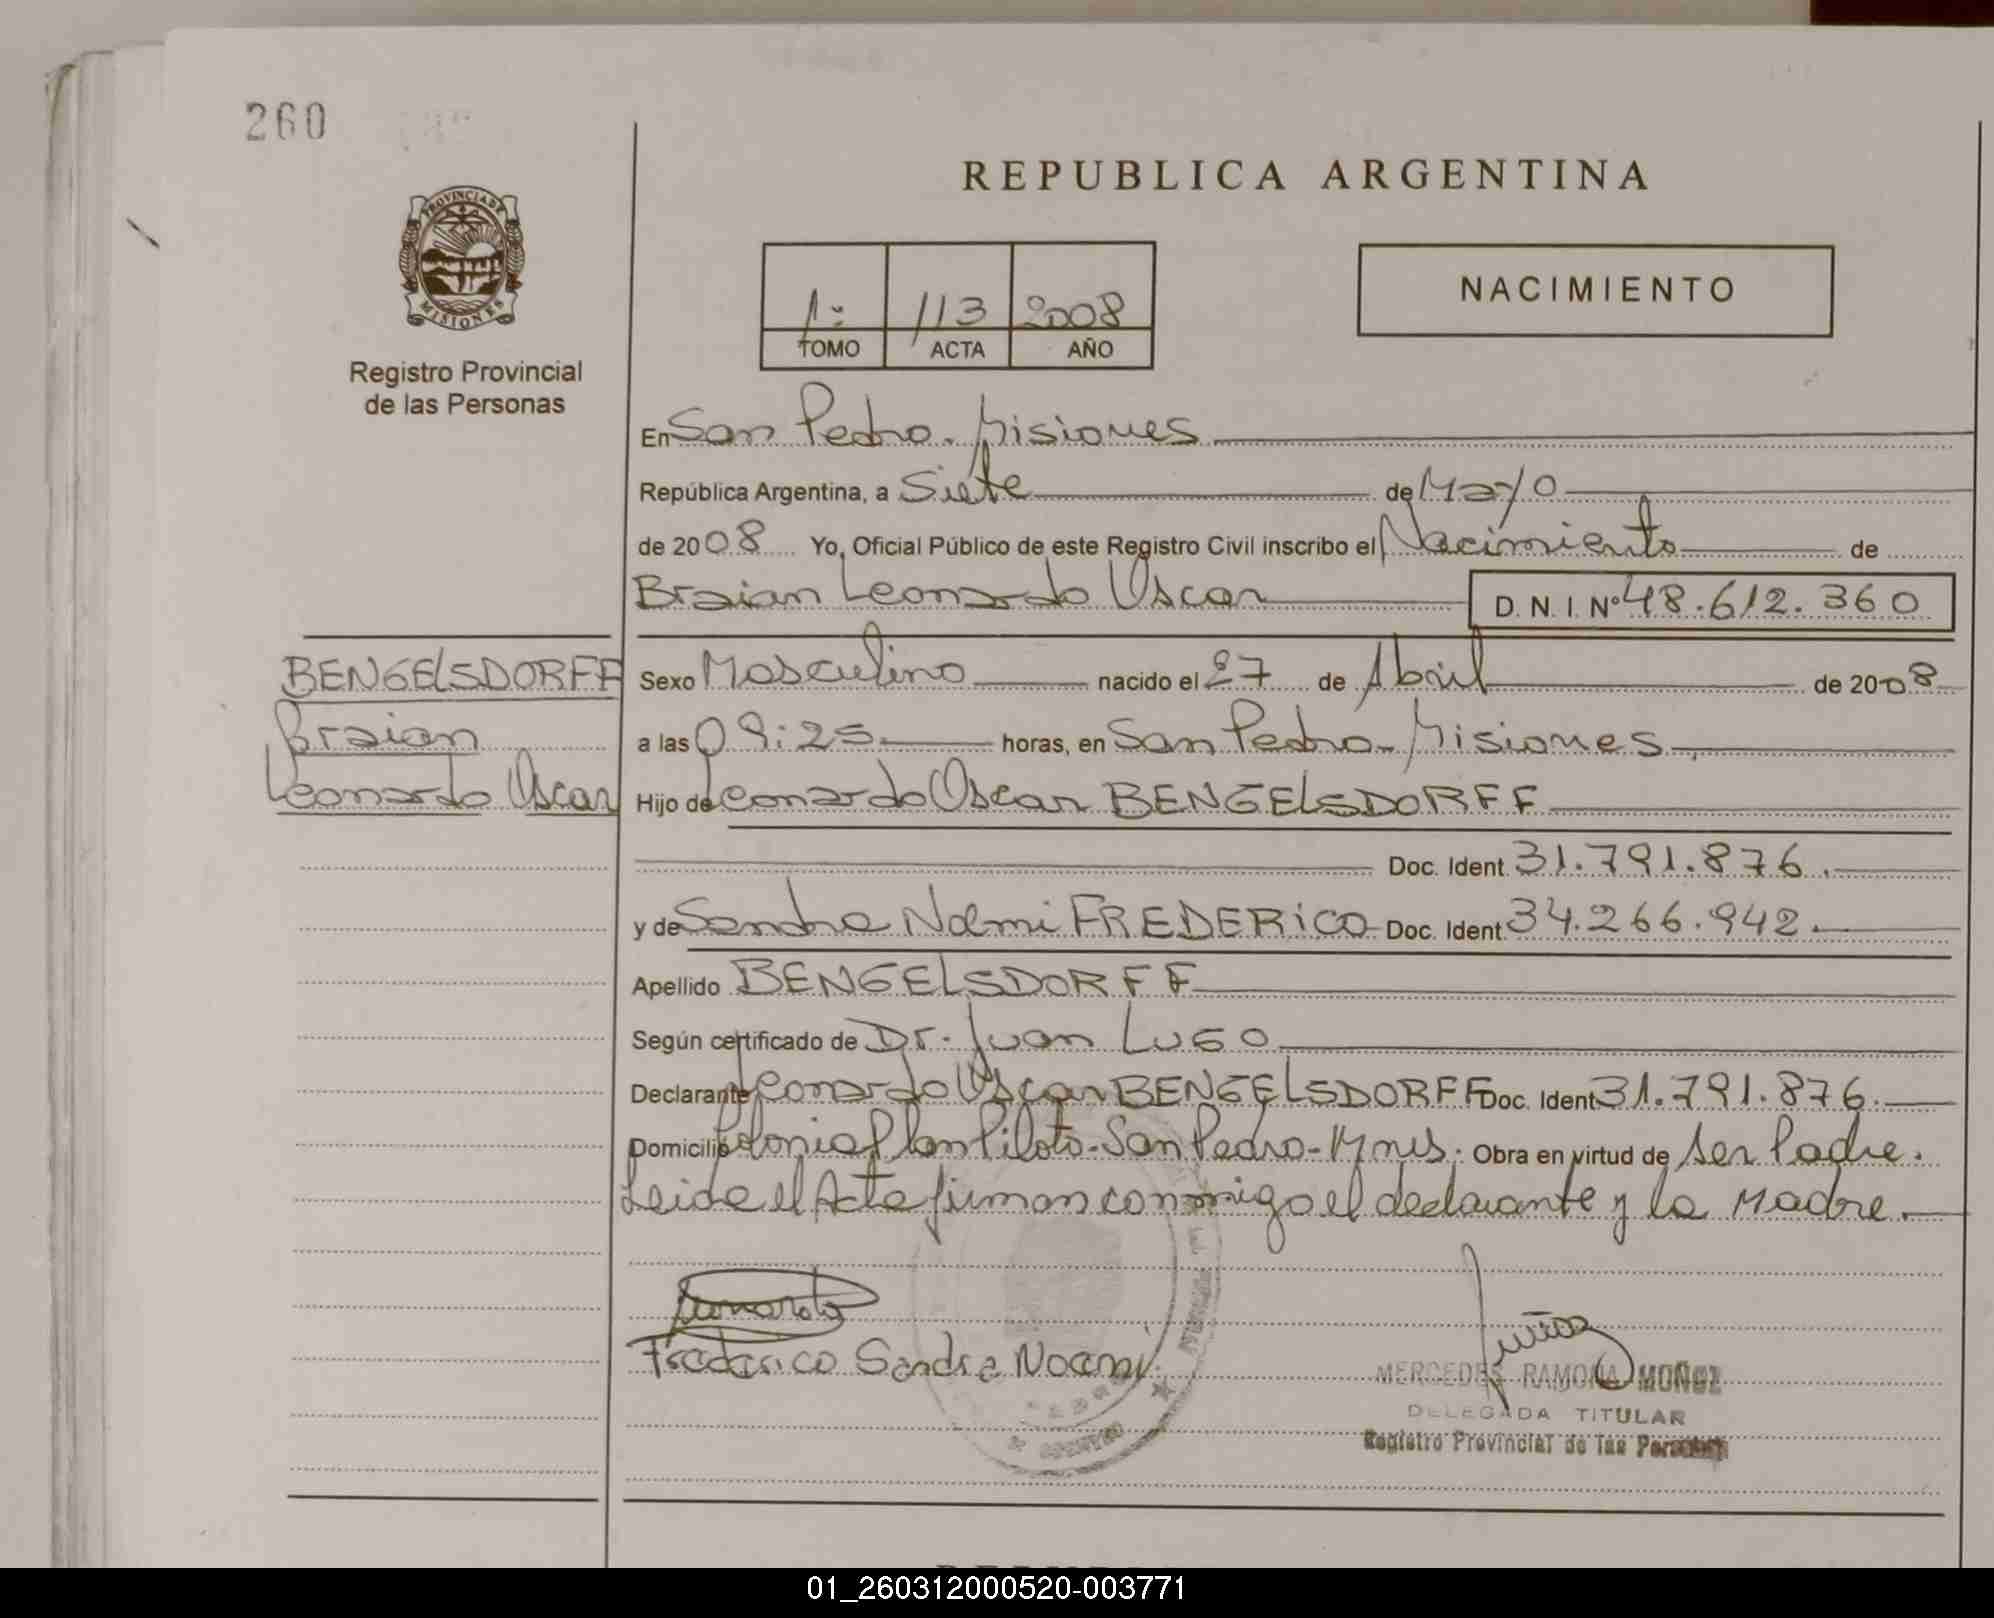 260
REPUBLICA ARGENTINA
PROVINCIA DE
MISIONES
Registro Provincial
de las Personas
1º 113 2008
TOMO ACTA AÑO
NACIMIENTO
En San Pedro. Misiones
República Argentina, a Siete de Mayo
de 2008 Yo, Oficial Público de este Registro Civil inscribo el Nacimiento de
Braian Leonardo Oscar D. N. I. Nº 48.612.360
BENGELSDORFF
Braian
Leonardo Oscar
Sexo Masculino nacido el 27 de Abril de 2008
a las 09:25 horas, en San Pedro - Misiones
Hijo de Leonardo Oscar BENGELSDORFF
Doc. Ident. 31.791.876.
y de Sandra Noemi FREDERICO Doc. Ident. 34.266.942.
Apellido BENGELSDORFF
Según certificado de Dr. Juan LUGO
Declarante Leonardo Oscar BENGELSDORFF Doc. Ident. 31.791.876.
Domicilio Colonia Plan Piloto - San Pedro - Mnes. Obra en virtud de ser Padre.
Leida el Acta firman conmigo el declarante y la Madre.
Leonardo
Frederico Sandra Noemi
MERCEDES RAMONA MUÑOZ
DELEGADA TITULAR
Registro Provincial de las Personas
01_260312000520-003771